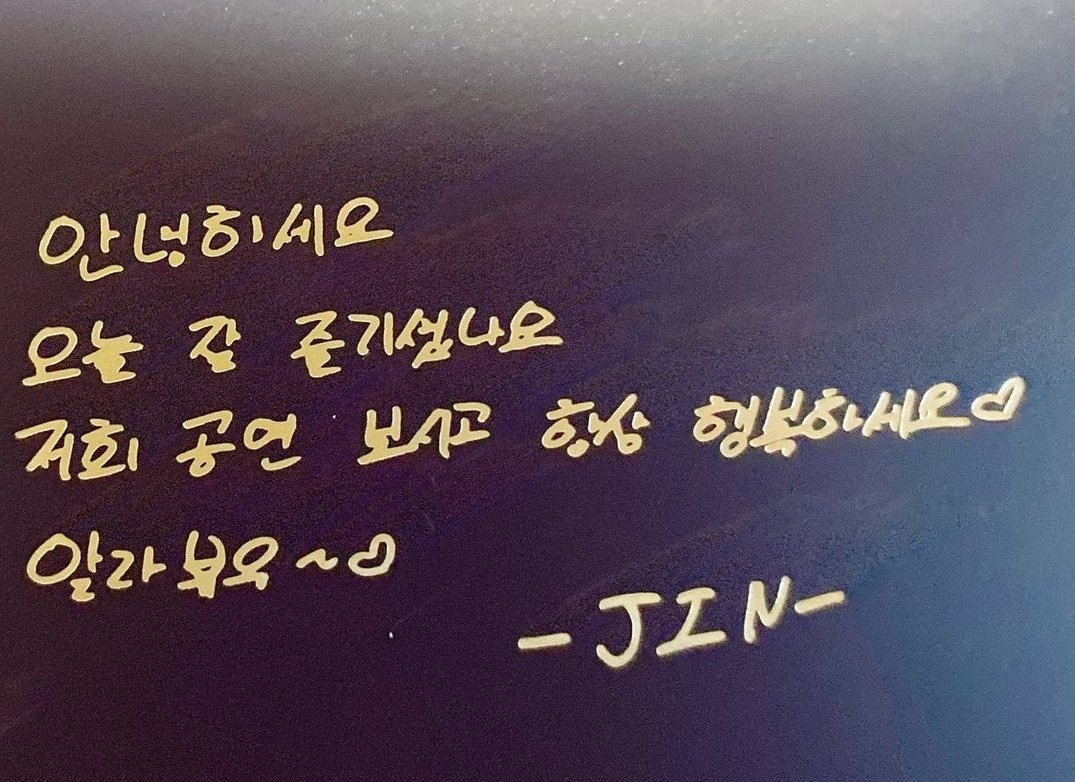 안녕하세요
오늘 잘 즐기셨나요
저희 공연 보시고 항상 행복하세요♡
알라뷰우~♡
-JIN-